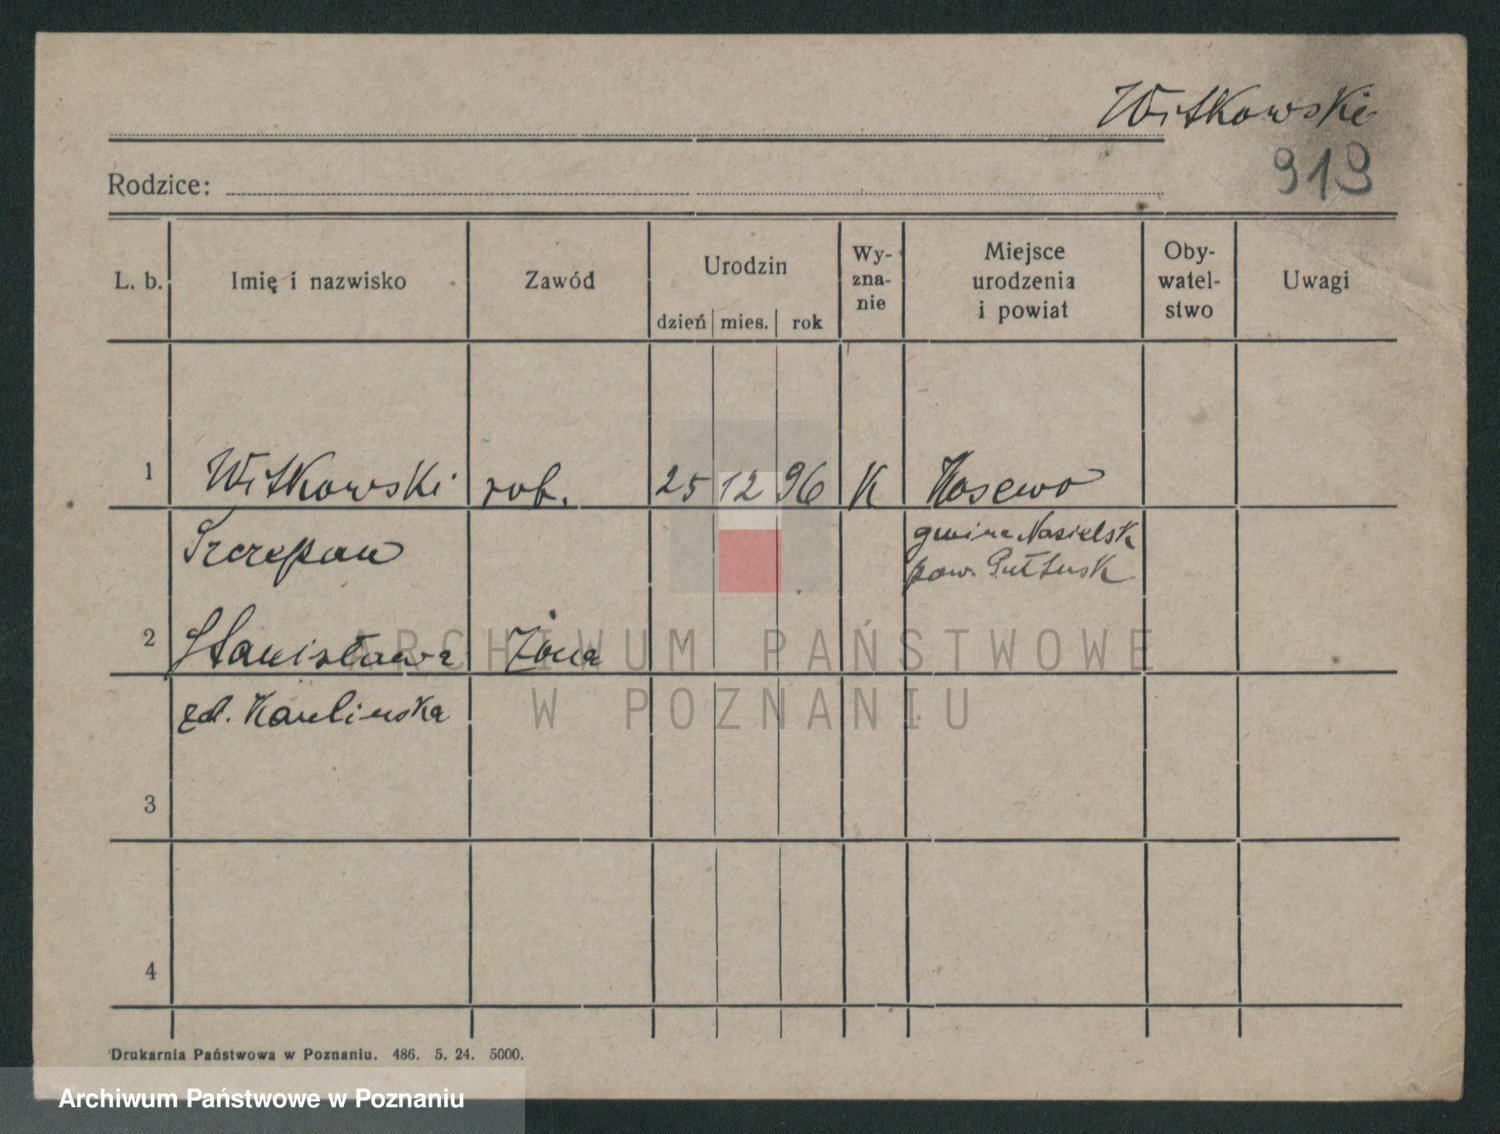 Witkowski
919
Rodzice:
L. b. Imię i nazwisko Zawód Urodzin Wy-zna-nie Miejsce urodzenia i powiat Oby-watel-stwo Uwagi
dzień mies. rok
1 Witkowski rob. 25 12 96 K Kosewo
Szczepan gmina Nasielsk
pow. Pułtusk
2 Stanisława Żona
zd. Karlinska
3
4
Drukarnia Państwowa w Poznaniu. 486. 5. 24. 5000.
ARCHIWUM PAŃSTWOWE
W POZNANIU
Archiwum Państwowe w Poznaniu